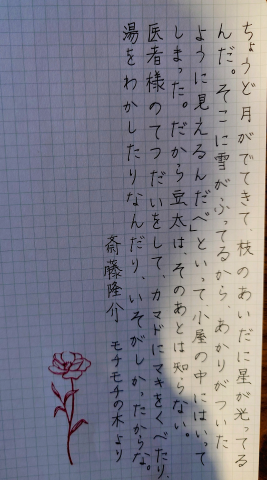 ちょうど月がでてきて、枝のあいだに星が光ってる
んだ。そこに雪がふってるから、あかりがついた
ように見えるんだべ」といって小屋の中にはいって
しまった。だから豆太は、そのあとは知らない。
医者様のてつだいをして、カマドにマキをくべたり、
湯をわかしたりなんだり、いそがしかったからな。
斎藤隆介 モチモチの木より